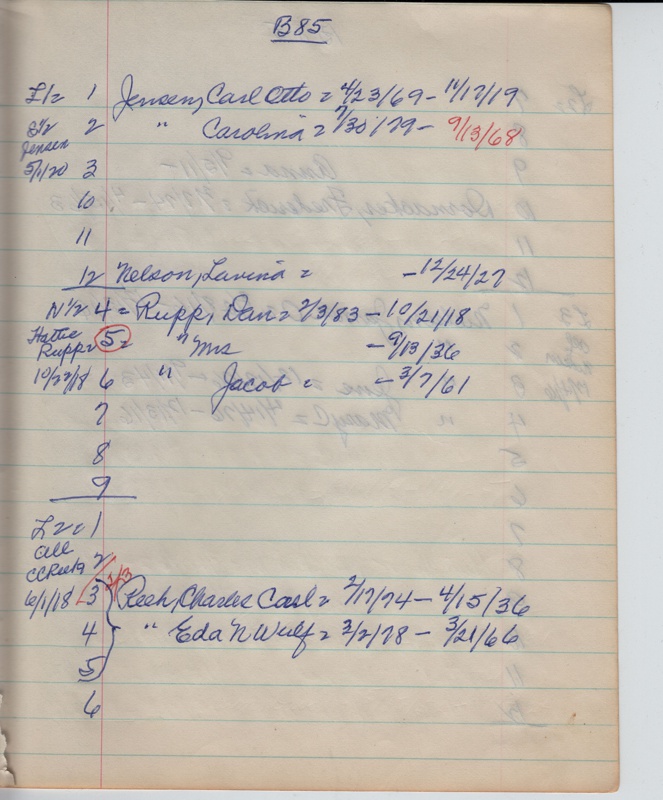 B85
L1= 1 Jensen, Carl Otto = 4/23/69 - 11/17/19
S½ 2 " Carolina = 7/30/79 - 9/13/68
Jensen
5/1/20 3
10
11
12 Nelson, Lavina = - 12/24/27
N½ 4 = Rupp, Dan = 2/3/83 - 10/21/18
Hattie
Rupp = 5 = " Mrs - 9/13/36
10/22/18 6 " Jacob = - 3/7/61
7
8
9
L2 = 1
all
2
6/1/18 3 Charles Carl = 2/17/74 - 4/15/36
4 " Eda N Wulf = 2/2/78 - 3/21/66
5
6